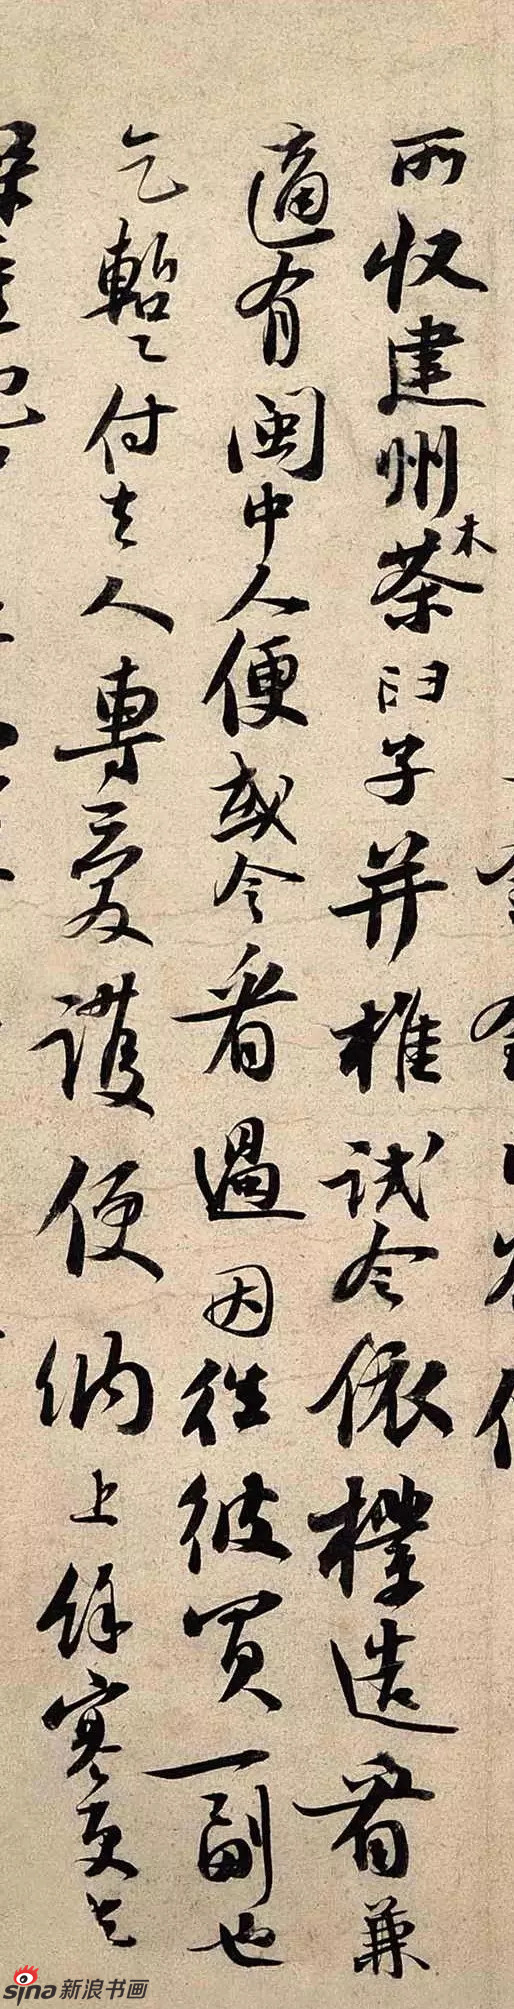 所收建州木茶臼子并椎試令依樣造看兼
適有閩中人便或令看過因往彼買一副也
乞暫付去人專愛護便納上餘寒更乞
sina新浪书画